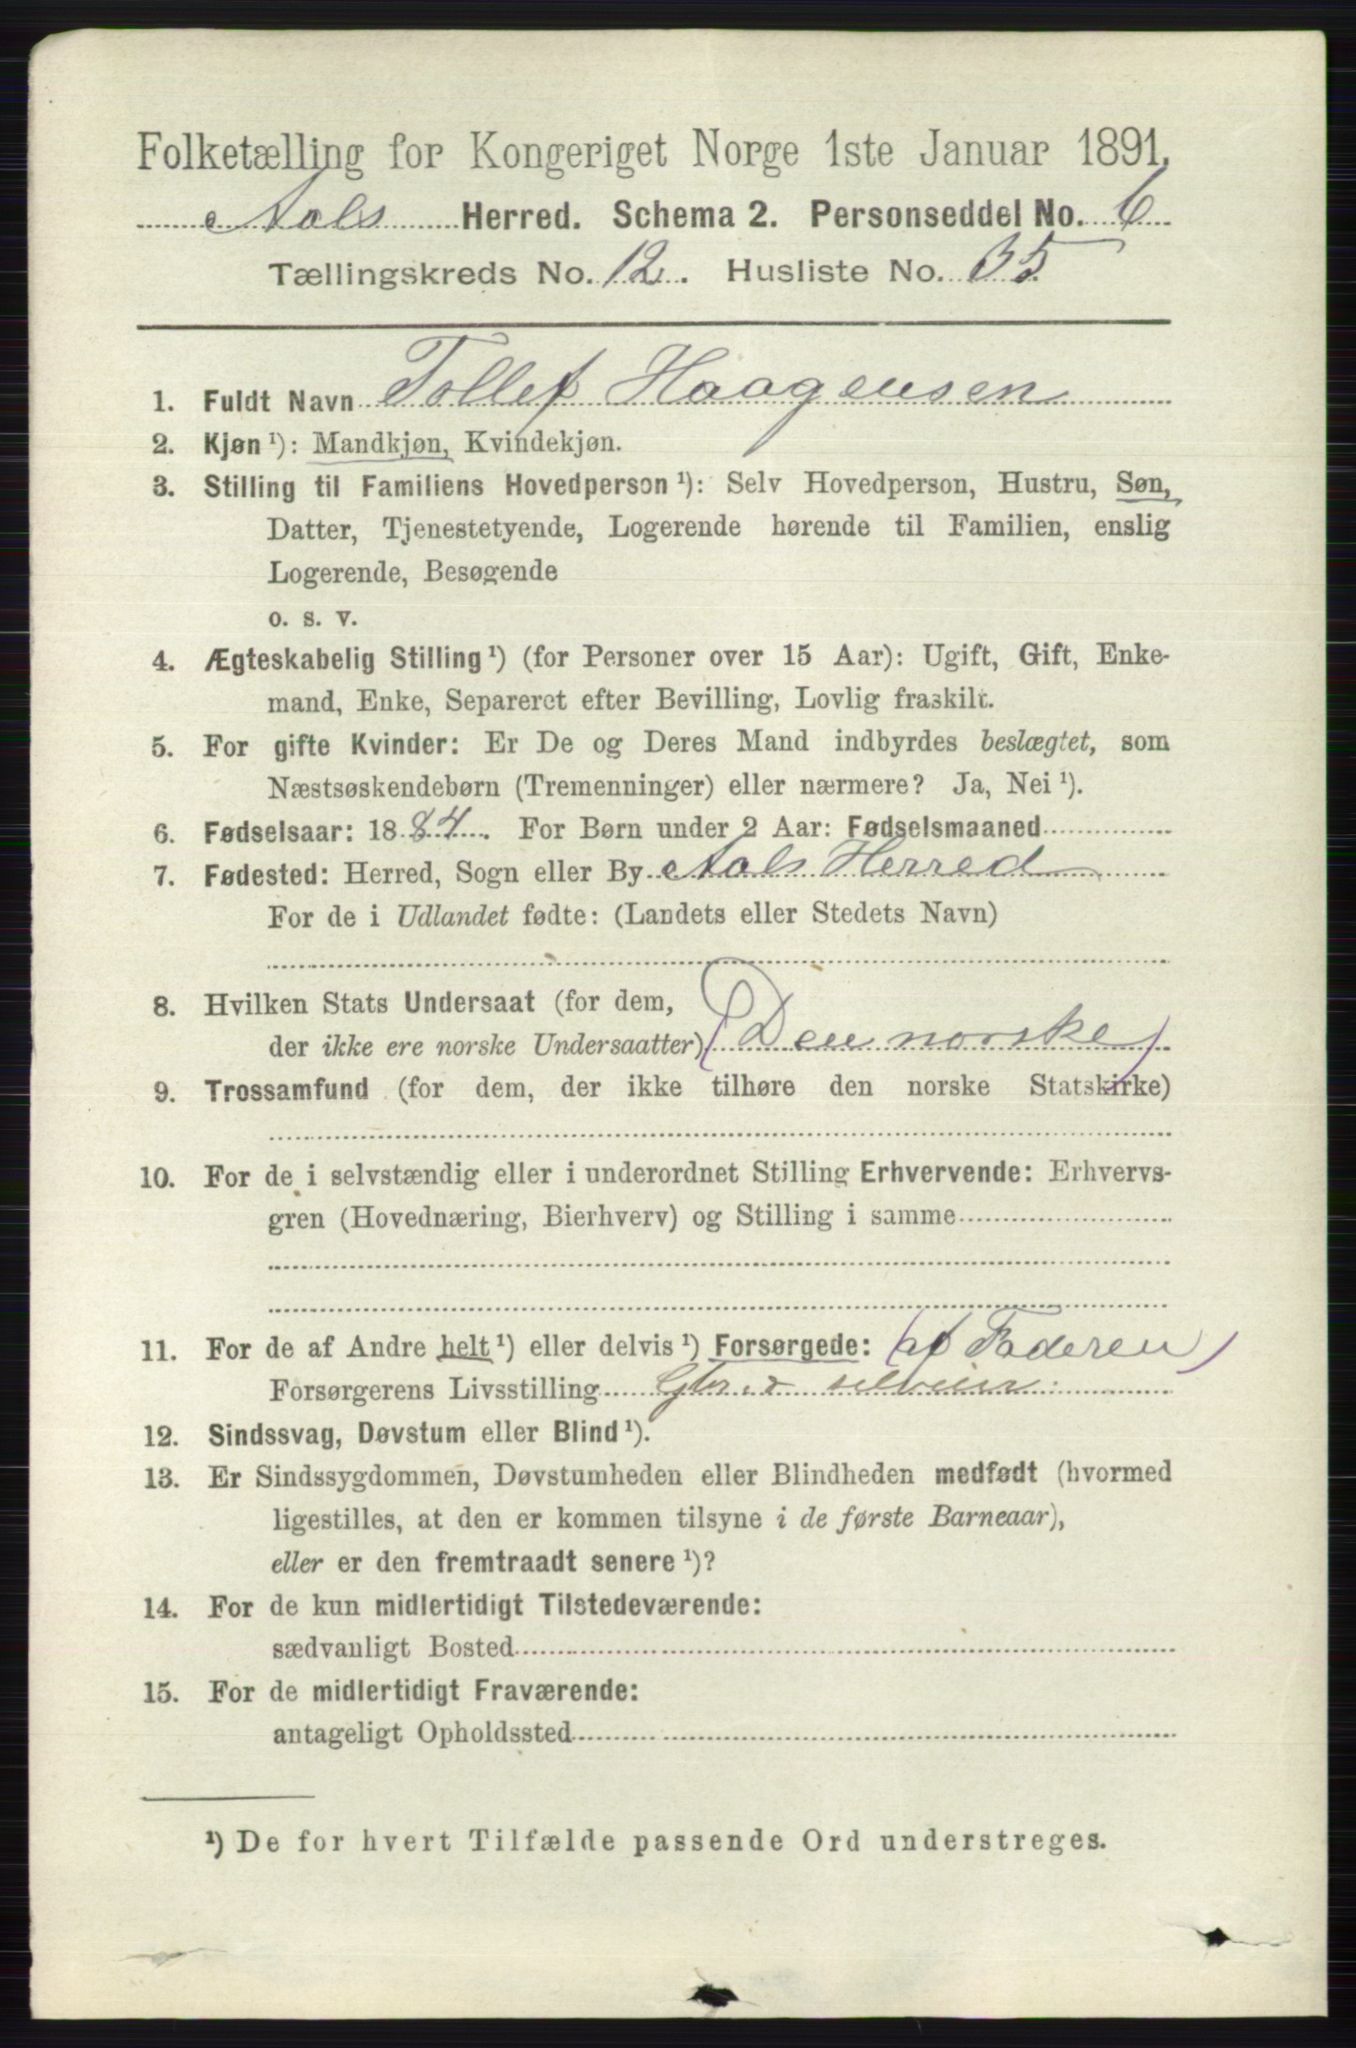 Folketælling for Kongeriget Norge 1ste Januar 1891.
Aals Herred. Schema 2. Personseddel No. 6
Tællingskreds No. 12. Husliste No. 35
1. Fuldt Navn Tollef Haagensen
2. Kjøn ¹): Mandkjøn, Kvindekjøn.
3. Stilling til Familiens Hovedperson ¹): Selv Hovedperson, Hustru, Søn,
Datter, Tjenestetyende, Logerende hørende til Familien, enslig
Logerende, Besøgende
o. s. v.
4. Ægteskabelig Stilling ¹) (for Personer over 15 Aar): Ugift, Gift, Enke-
mand, Enke, Separeret efter Bevilling, Lovlig fraskilt.
5. For gifte Kvinder: Er De og Deres Mand indbyrdes beslægtet, som
Næstsøskendebørn (Tremenninger) eller nærmere? Ja, Nei ¹).
6. Fødselsaar: 1884. For Børn under 2 Aar: Fødselsmaaned
7. Fødested: Herred, Sogn eller By Aals Herred
For de i Udlandet fødte: (Landets eller Stedets Navn)
8. Hvilken Stats Undersaat (for dem,
der ikke ere norske Undersaatter) (Den norske)
9. Trossamfund (for dem, der ikke tilhøre den norske Statskirke)
10. For de i selvstændig eller i underordnet Stilling Erhvervende: Erhvervs-
gren (Hovednæring, Bierhverv) og Stilling i samme
11. For de af Andre helt ¹) eller delvis ¹) Forsørgede: (af Faderen)
Forsørgerens Livsstilling Gbr. selveier
12. Sindssvag, Døvstum eller Blind ¹).
13. Er Sindssygdommen, Døvstumheden eller Blindheden medfødt (hvormed
ligestilles, at den er kommen tilsyne i de første Barneaar),
eller er den fremtraadt senere ¹)?
14. For de kun midlertidigt Tilstedeværende:
sædvanligt Bosted
15. For de midlertidigt Fraværende:
antageligt Opholdssted
¹) De for hvert Tilfælde passende Ord understreges.